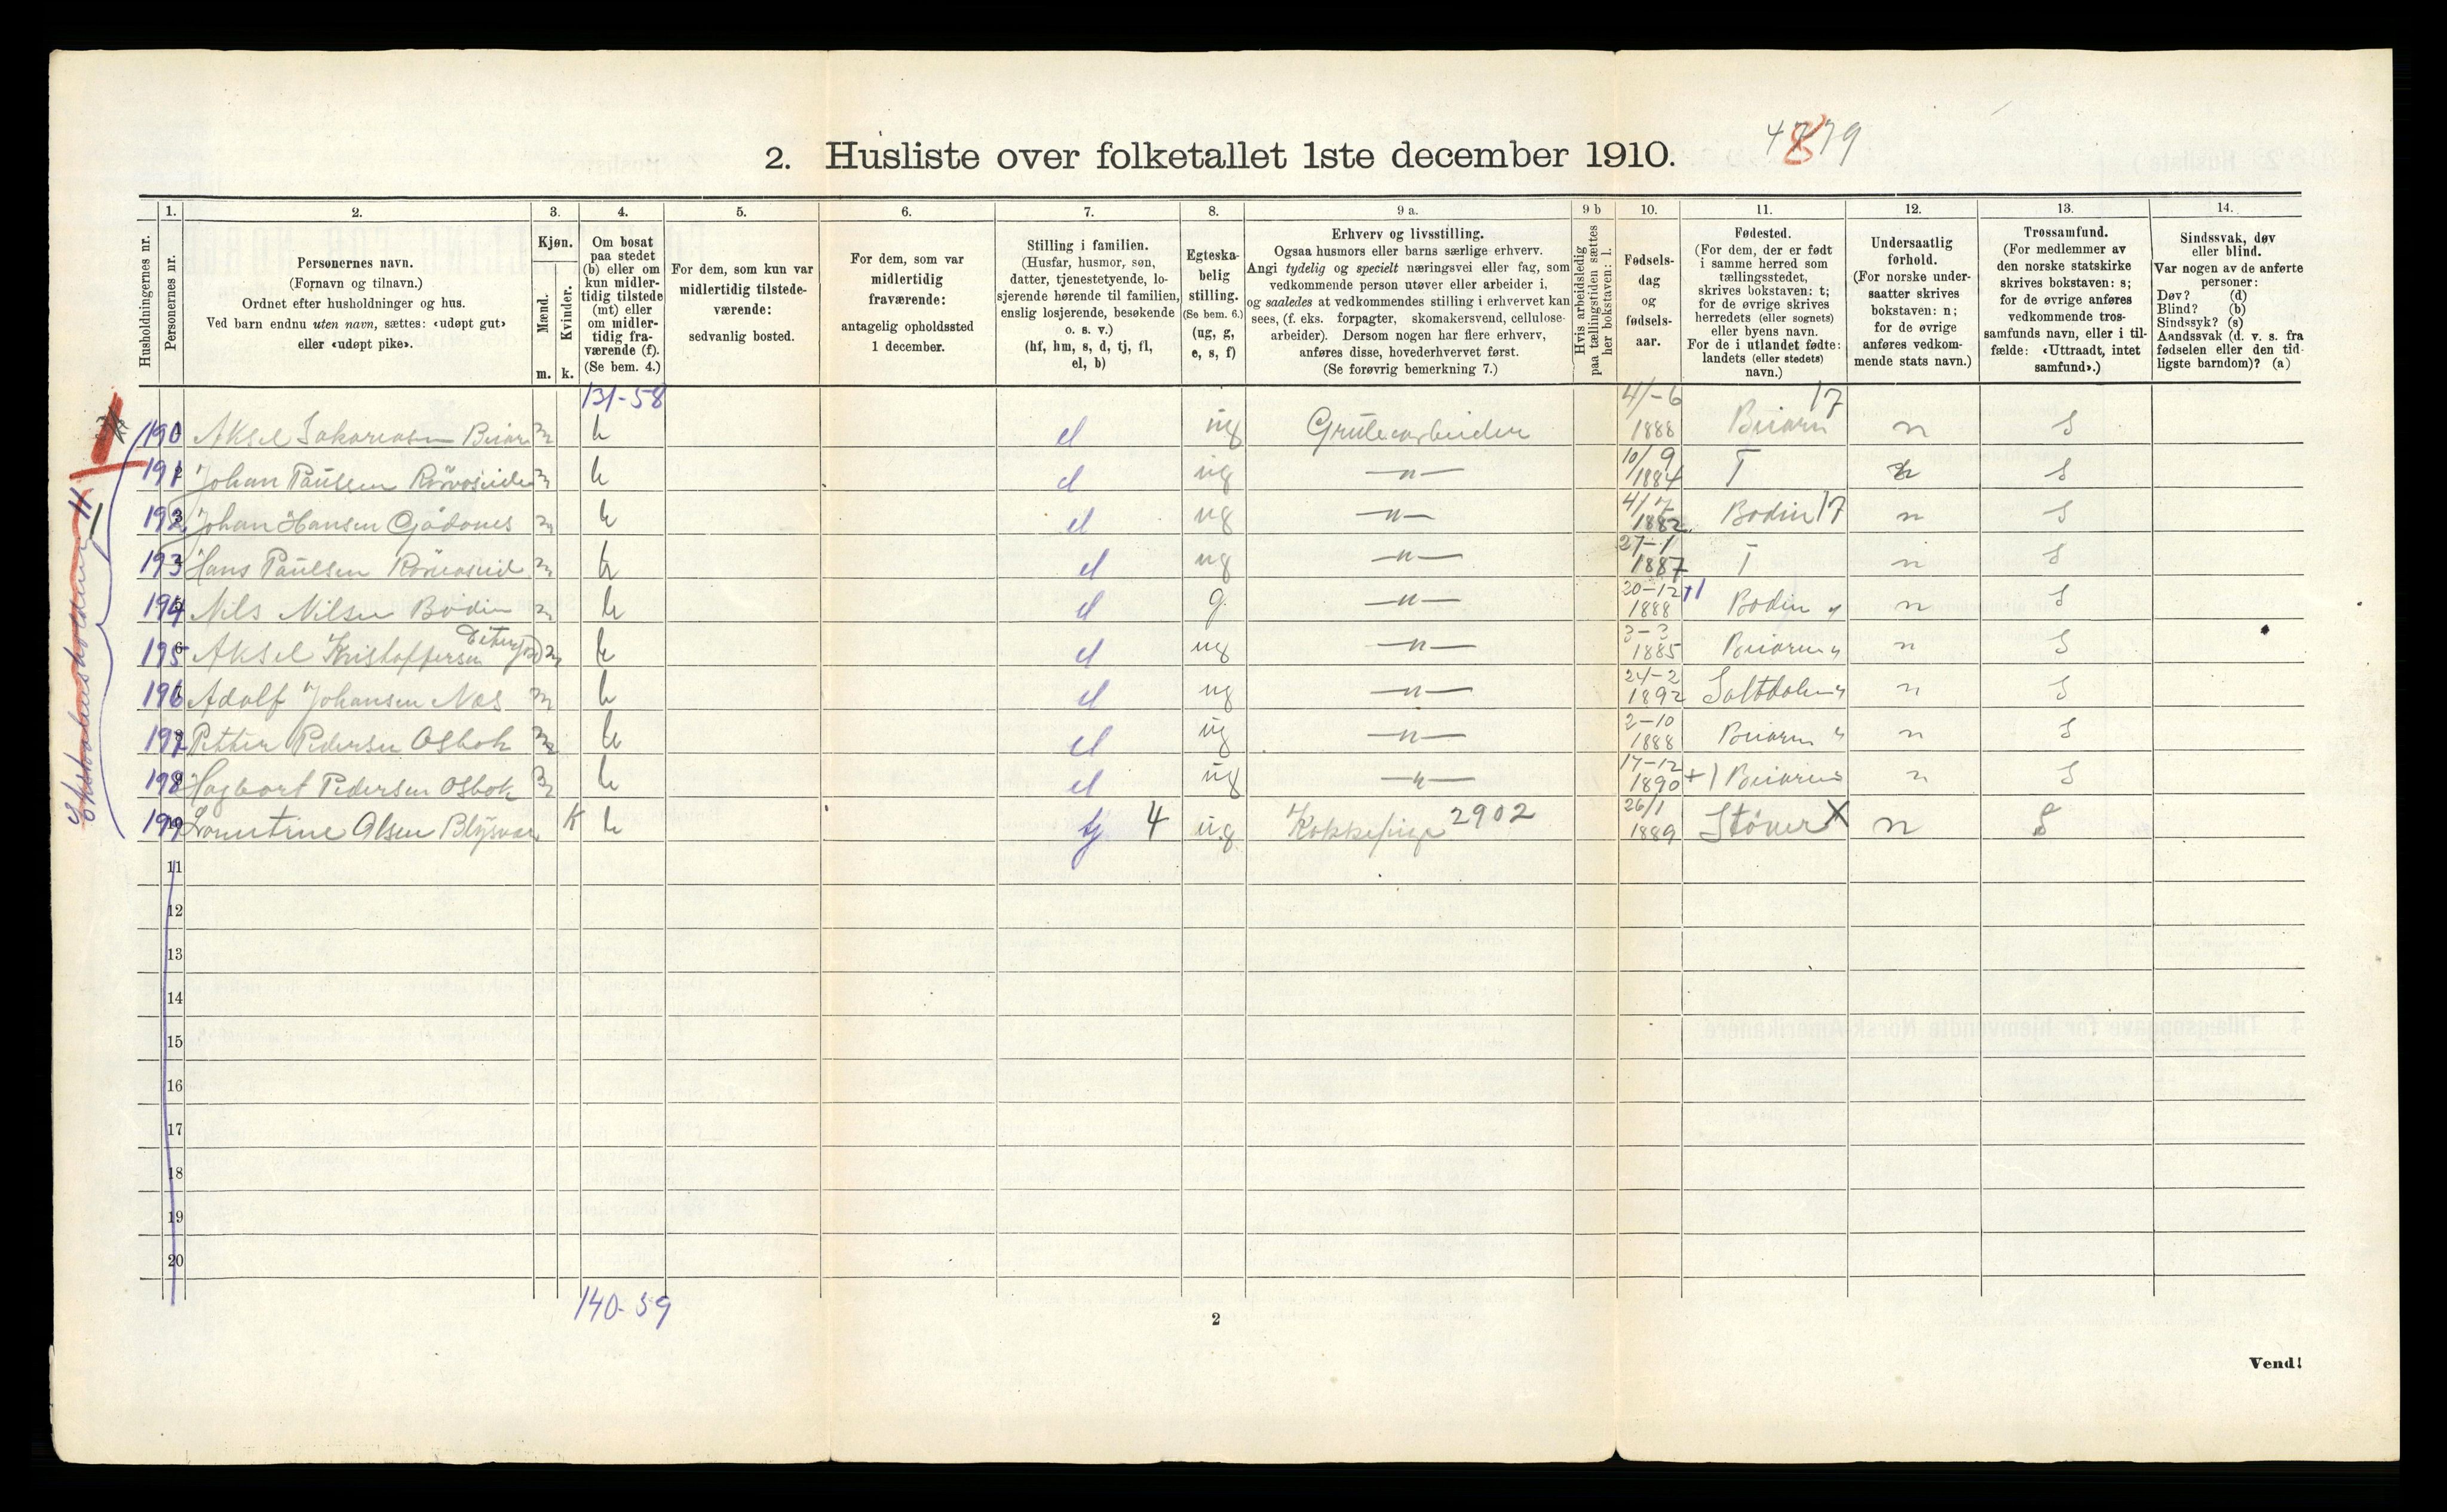 4779
8
2. Husliste over folketallet 1ste december 1910.
Husholdningernes nr.
1.
Personernes nr.
2.
Personernes navn.
(Fornavn og tilnavn.)
Ordnet efter husholdninger og hus.
Ved barn endnu uten navn, sættes: «udøpt gut»
eller «udøpt pike».
3.
Kjøn.
Mænd.
Kvinder.
m. k.
4.
Om bosat
paa stedet
(b) eller om
kun midler-
tidig tilstede
(mt) eller
om midler-
tidig fra-
værende (f).
(Se bem. 4.)
5.
For dem, som kun var
midlertidig tilstede-
værende:
sedvanlig bosted.
6.
For dem, som var
midlertidig
fraværende:
antagelig opholdssted
1 december.
7.
Stilling i familien.
(Husfar, husmor, søn,
datter, tjenestetyende, lo-
sjerende hørende til familien,
enslig losjerende, besøkende
o. s. v.)
(hf, hm, s, d, tj, fl,
el, b)
8.
Egteska-
belig
stilling.
(Se bem. 6.)
(ug, g,
e, s, f)
9 a.
Erhverv og livsstilling.
Ogsaa husmors eller barns særlige erhverv.
Angi tydelig og specielt næringsvei eller fag, som
vedkommende person utøver eller arbeider i,
og saaledes at vedkommendes stilling i erhvervet kan
sees, (f. eks. forpagter, skomakersvend, cellulose-
arbeider). Dersom nogen har flere erhverv,
anføres disse, hovederhvervet først.
(Se forøvrig bemerkning 7.)
9 b
Hvis arbeidsledig
paa tællingstiden sættes
her bokstaven: l.
10.
Fødsels-
dag
og
fødsels-
aar.
11.
Fødested.
(For dem, der er født
i samme herred som
tællingsstedet,
skrives bokstaven: t;
for de øvrige skrives
herredets (eller sognets)
eller byens navn.
For de i utlandet fødte:
landets (eller stedets)
navn.)
12.
Undersaatlig
forhold.
(For norske under-
saatter skrives
bokstaven: n;
for de øvrige
anføres vedkom-
mende stats navn.)
13.
Trossamfund.
(For medlemmer av
den norske statskirke
skrives bokstaven: s;
for de øvrige anføres
vedkommende tros-
samfunds navn, eller i til-
fælde: «Uttraadt, intet
samfund».)
14.
Sindssvak, døv
eller blind.
Var nogen av de anførte
personer:
Døv? (d)
Blind? (b)
Sindssyk? (s)
Aandssvak (d. v. s. fra
fødselen eller den tid-
ligste barndom)? (a)
131-58
190 Aksel Sakariasen Beiarn m b el ug Grubearbeider 4/-6 1888 Beiarn 17 n S
191 Johan Paulsen m b el ug —"— 10/9 1884 T n S
192 Johan Hansen Gjådones m b el ug —"— 4/7 1882 Bodin 17 n S
193 Hans Paulsen m b el ug —"— 27-1 1887 T n S
194 Nils Nilsen Bodin m b el g —"— 20-12 1888 +1 Bodin " n S
195 Aksel Kristoffersen m b el ug —"— 3-3 1885 Beiarn " n S
196 Adolf Johansen Nes m b el ug —"— 24-2 1892 Saltdalen " n S
197 Petter Pedersen Osbok m b el ug —"— 2-10 1888 Beiarn " n S
198 Hagbart Pedersen Osbok m b el ug —"— 17-12 1890 +1 Beiarn " n S
199 Olsen K b tj 4 ug Kokkepige 2902 26/1 1889 Støver X n S
11
12
13
14
15
16
17
18
19
20
140-59
2
Vend!